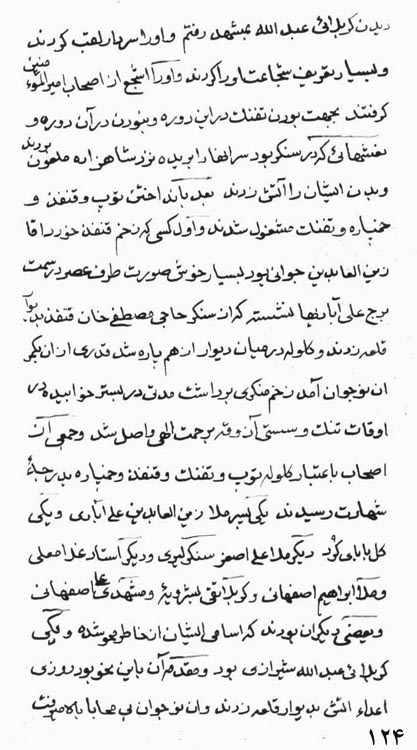 دیدن کربلائی عبد الله بمشهد رفتم و اورا سردار لقب کردند
و بسیار تعریف شجاعت اورا کردند و اورا اشجع از اصحاب امیر المؤمنین
گرفتند بجهت بودن تفنک در این دوره و نبودن در آن دوره و
نعشهائی که در سنکر بود سرانها را بریده نزد شاهزاده ملعون بردند
و بدن ایشان را آتش زدند بعد بانداختن توپ و قنفذ و
خمپاره و تفنک مشغول شدند و اول کسی که زخم قنفذ خورد اقا
زین العابدین جوانی بود بسیار خوش صورت طرف عصر در سمت
برج علی آباد نها نشسته که از سنکر حاجی مصطفی خان قنفذ بدیوار
قلعه زدند و کلوله در میان دیوار از هم پاره شد قدری از ان بکمر
ان نوجوان آمد زخم منکری بود داشت مدتی در بستر خوابیده در
اوقات تنک و سستی آذوقه برحمت الهی واصل شد و جمعی از
اصحاب باعتبار کلوله توپ و تفنک و قنفذ و خمپاره بدرجهٔ
شهادت رسیدند یکی پسر ملا زین العابدین علی ابادی و یکی
کل بابای کرد دیکر ملا علی اصغر سنکسری و دیکر استاد غلامعلی
و ملا ابراهیم اصفهانی و کربلا تقی بشرویهٔ و مشهدی علی اصفهانی
و بعضی دیکران بودند که اسامی ایشان از خاطر محو شده و یکی
کربلائی عبد الله شیرازی بود و مقدمه آن باین نحو بود روزی
اعداء آتش بدیوار قلعه زدند و ان نوجوان بی محابا بالا میرفت
۱۲۴